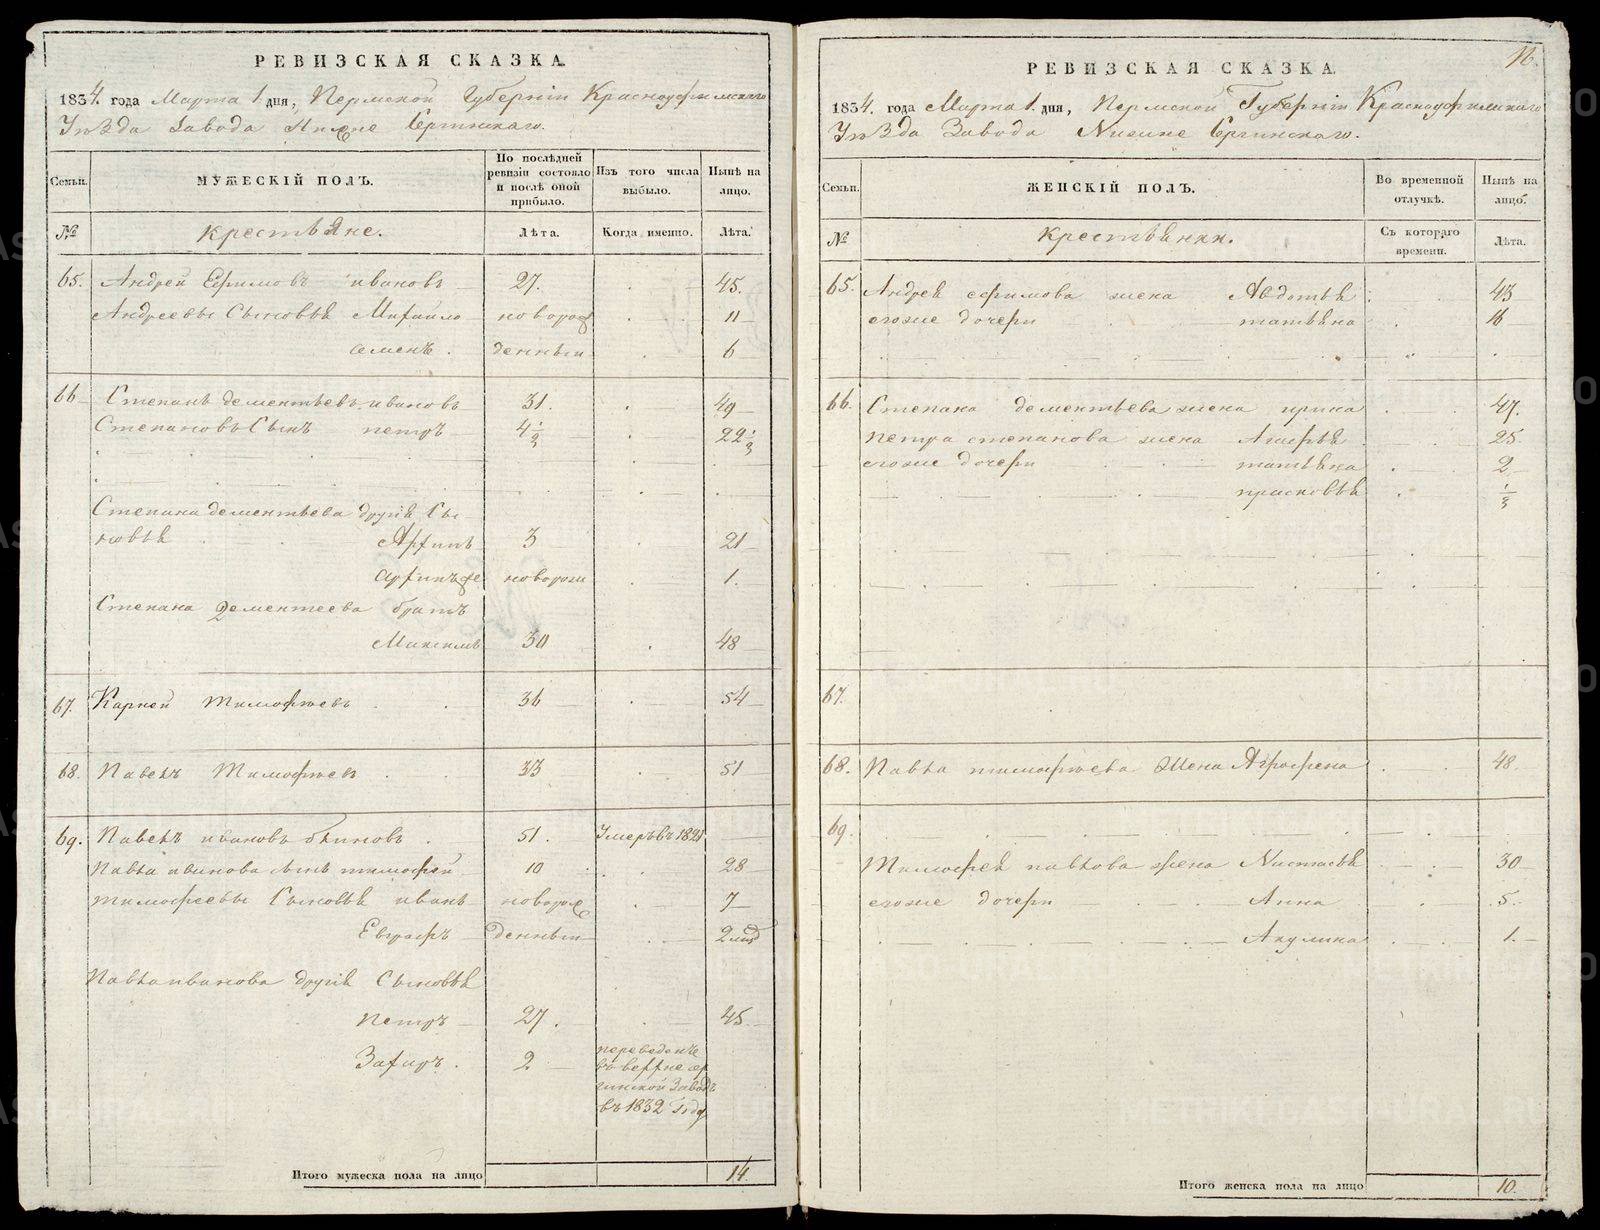 РЕВИЗСКАЯ СКАЗКА.
1834. года Марта 1. дня, Пермской Губерніи Красноуфимскаго
Уѣзда Завода Нижне Сергинскаго.
Семьи.
МУЖЕСКІЙ ПОЛЪ.
По послѣдней ревизіи состояло и послѣ оной прибыло.
Изъ того числа выбыло.
Нынѣ на лицо.
№
крестьяне.
Лѣта.
Когда именно.
Лѣта.
65. Андрей Ефимовъ ивановъ 27. 45.
Андреевы Сыновья Михайло новорож 11
семенъ. денныи 6
66 Степанъ дементьевъ ивановъ 31. 49
Степановъ Сынъ петръ 4 1/2 22 1/2
Степана дементьева другія Сы-
новья Архипъ 3 21
архипъ же новорож 1.
Степана Дементеева братъ
Максимъ 30 48
67. Карней Тимофѣевъ 36 54
68. Павелъ Тимофѣевъ 33 51
69. Павелъ ивановъ блиновъ. 51. Умеръ въ 1821
Павла иванова сынъ тимофей 10 28
тимофеевы Сыновья иванъ новорож 7
Евграфъ денныи 2 мцъ
Павла иванова другія Сыновья
петръ 27. 45.
Захаръ. 2 переведенъ
въ верхне сер
гинской Заводъ
въ 1832 году
Итого мужеска пола на лицо 14.
РЕВИЗСКАЯ СКАЗКА.
1834. года Марта 1. дня, Пермской Губерніи Красноуфимскаго
Уѣзда Завода Нижне Сергинскаго.
Семьи.
ЖЕНСКІЙ ПОЛЪ.
Во временной отлучкѣ.
Нынѣ на лицо.
№
крестьянки.
Съ котораго времени.
Лѣта.
65. Андрея ефимова жена Авдотья 43
егоже дочери татьяна 16
66. Степана дементьева жена ирина 47.
петра степанова жена 25.
егоже дочери татьяна 2
прасковья 1/2
67.
68. Павла тимофѣева Жена Аграфена 48.
69.
Тимофея павлова жена Настасья 30
егоже дочери Анна 5.
Акулина 1.
Итого женска пола на лицо 10.